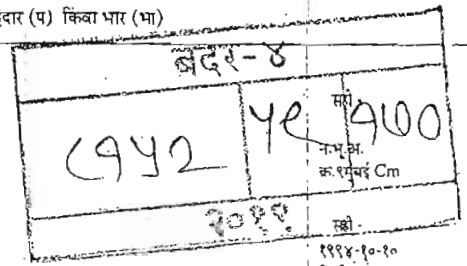 दार (प) किंवा भार (भा)
बदर-४
८१५२ ५९ १७०
सही
न.भू.अ.
क्र.९मुंबई Cm
२०११
सही
१९९४-१०-१०